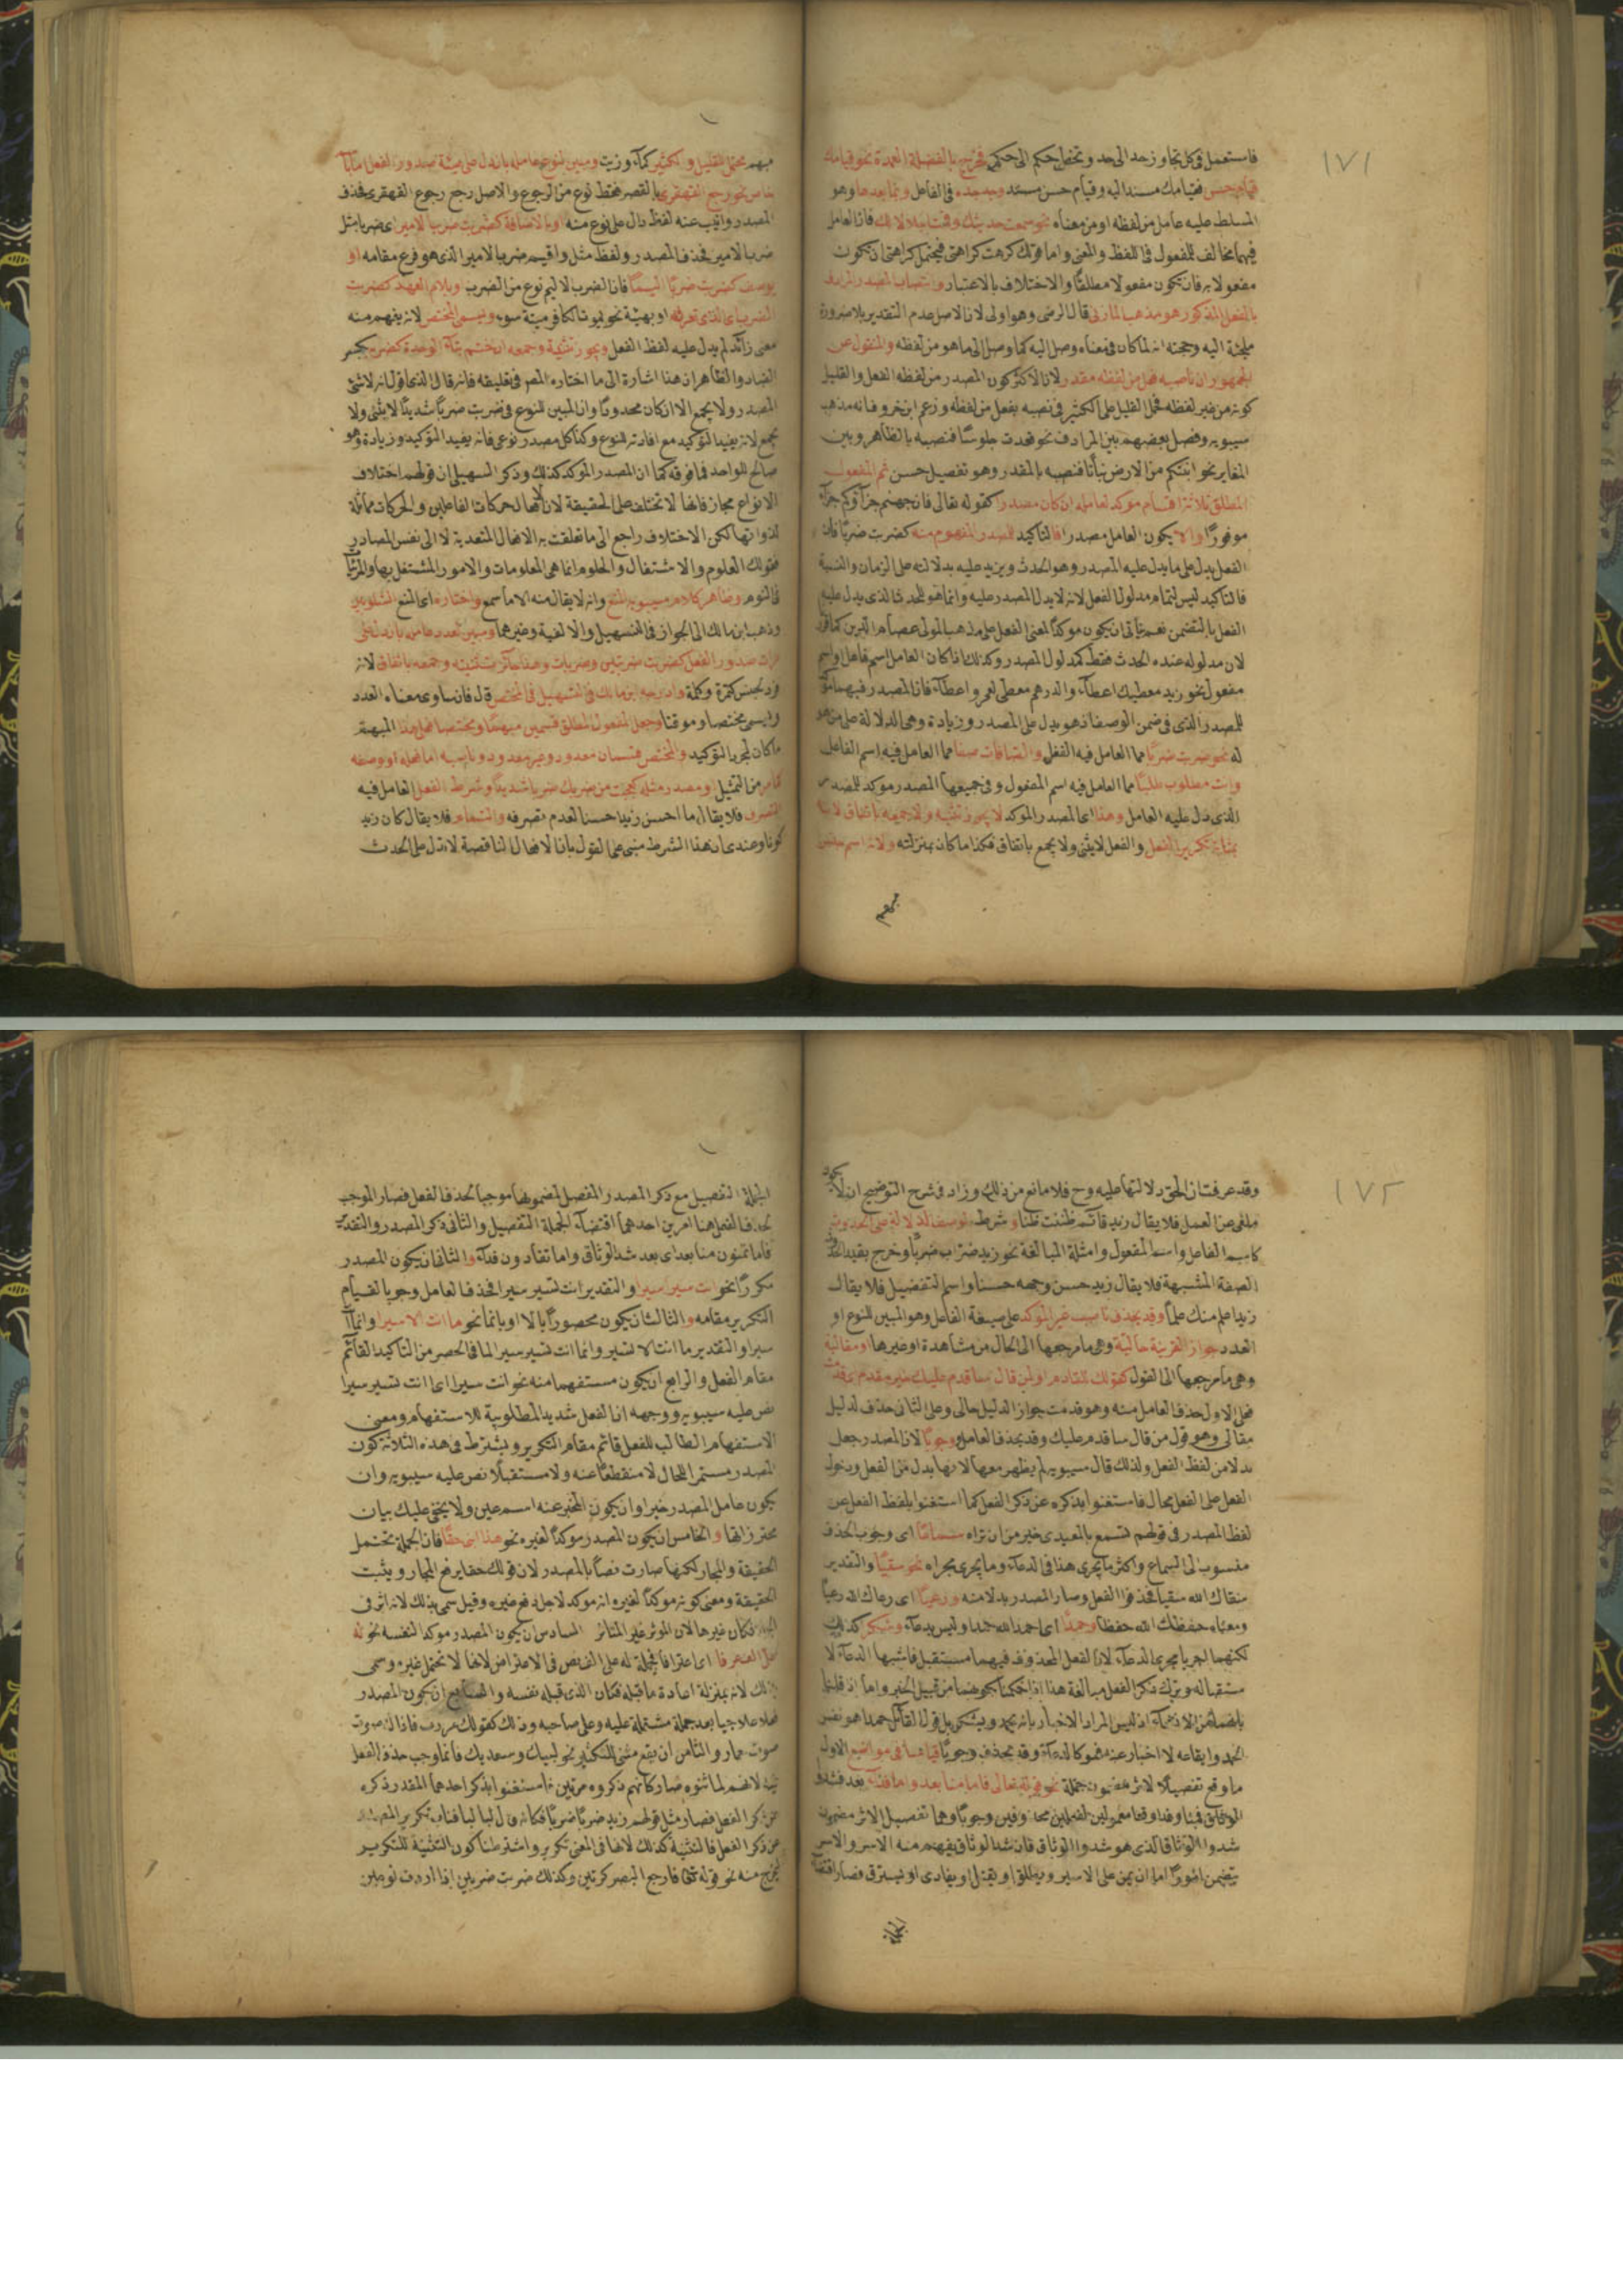 ١٧١
فاستعمل في كل تجاوز حد الى حد وتخطي حكم الى حكم فخرج بالفضلة العمدة نحو قيامك
قيام حسن فقيامك مسند اليه وقيام حسن مسند وبمبعده في الفاعل وبما بعدها وهو
المسلط عليه عامل من لفظه او من معناه نحو سمعت حديثك وقت اجلالا لك فان العامل
فيهما مخالف للمفعول في اللفظ والمعنى واما قولك كرهت كراهتي فيحتمل كراهتي ان يكون
مفعولا به فان يكون مفعولا مطلقا والاختلاف بالاعتبار وانتصاب المصدر المرادف
بالفعل المذكور هو مذهب المازني قال الرضي وهو اولى لان الاصل عدم التقدير بلا ضرورة
ملجئة اليه وحجته انه لما كان في معناه وصل اليه كما وصل الى ما هو من لفظه والمنقول عن
الجمهور ان ناصبه فعل من لفظه مقدر لان الاكثر كون المصدر من لفظه الفعل والقليل
كونه من غير لفظه فحمل القليل على الكثير في نصبه بفعل من لفظه وزعم ابن خروف انه مذهب
سيبويه وفصل بعضهم بين المرادف نحو قعدت جلوسا فنصبه بالظاهر وبين
المغاير نحو انبتكم من الارض نباتا فنصبه بالمقدر وهو تفصيل حسن ثم المفعول
المطلق ثلاثة اقسام مؤكد لعامله ان كان مصدرا كقوله تعالى فان جهنم جزاؤكم جزاء
موفورا والا يكون العامل مصدرا فالتاكيد للمصدر المفهوم منه كضربت ضربا فان
الفعل يدل على ما يدل عليه المصدر وهو الحدث ويزيد عليه بدلالته على الزمان والنسبة
فالتاكيد ليس لتمام مدلول الفعل لانه لا يدل المصدر عليه وانما هو للحدث الذي يدل عليه
الفعل بالتضمن نعم يأتي ان يكون مؤكدا لمعنى الفعل على مذهب المولى عصام الدين
لان مدلوله عنده الحدث فقط كمدلول المصدر وكذلك اذا كان العامل اسم فاعل او اسم
مفعول نحو زيد معطيك اعطاء والدرهم معطى لعمرو اعطاء فان المصدر فيهما مؤكد
للمصدر الذي في ضمن الوصف اذ هو يدل على المصدر وزيادة وهي الدلالة على من هو
له نحو ضربت ضربا مما العامل فيه الفعل والصافات صفا مما العامل فيه اسم الفاعل
وانت مطلوب طلبا مما العامل فيه اسم المفعول وفي جميعها المصدر مؤكد للمصدر
الذي دل عليه العامل وهذا اي المصدر المؤكد لا يجوز تثنيته ولا جمعه باتفاق لانه
بمثابة تكرير الفعل والفعل لا يثنى ولا يجمع باتفاق فكذا ما كان بمنزلته ولانه اسم جنس
مبهم
مبهم محتمل للقليل والكثير كماء وزيت ومبين لنوع عامله بان دل على هيئة صدور الفعل اما باسم
خاص نحو رجع القهقرى بالقصر فقط نوع من الرجوع والاصل رجع رجوع القهقرى فحذف
المصدر وانيب عنه لفظ دال على نوع منه او بالاضافة كضربت ضرب الامير اي ضربا مثل
ضرب الامير فحذف المصدر ولفظ مثل واقيم ضرب الامير الذي هو فرع مقامه او
بوصف كضربت ضربا اليما فان الضرب الاليم نوع من الضرب او بلام العهد كضربت
الضرب اي الذي تعرفه او بهيئة نحو يموت الكافر ميتة سوء ويسمى المختص لانه يفهم منه
معنى زائد لم يدل عليه لفظ الفعل ويجوز تثنيته وجمعه ان ختم بتاء الوحدة كضربة
الضاد والظاهر ان هذا اشارة الى ما اختاره المص في تعليقه فانه قال الذي اقول انه لا يثنى
المصدر ولا يجمع الا ان كان محدودا وان المبين للنوع في ضربت ضربا شديدا لا يثنى ولا
يجمع لانه يفيد التوكيد مع افادته النوع وكذا كل مصدر نوعي فانه يفيد التوكيد وزيادة وهو
صالح للواحد فما فوقه كما ان المصدر المؤكد كذلك وذكر السهيلي ان قولهم اختلاف
الانواع مجاز فانها لا تختلف على الحقيقة لانها حركات الفاعلين والحركات مماثلة
لذواتها لكن الاختلاف راجع الى ما تعلقت به الافعال المتعدية لا الى نفس المصادر
فقولك العلوم والاشتغال والحلوم انما هي المعلومات والامور المشتغل بها والمرئيات
في النوم وظاهر كلام سيبويه المنع وانه لا يقال منه الا ما سمع واختاره اي المنع الشلوبين
وذهب ابن مالك الى الجواز في التسهيل والالفية وغيرهما ومبين لعدد عامله بان دل على
مرات صدور الفعل كضربت ضربتين وضربات وهذا جائز تثنيته وجمعه باتفاق لانه
فرد لجنس كتمرة وكلمة وادرجه ابن مالك في التسهيل في المختص قال فانه ساوى معناه العدد
وليسمى مختصا وموقتا وجعل المفعول المطلق قسمين مبهما ومختصا فعلى هذا المبهم
ما كان لمجرد التوكيد والمختص قسمان معدود وغير معدود وناصبه اما فعله او وصفه
كما مر من التمثيل او مصدر مثله كعجبت من ضربك ضربا شديدا وشرط الفعل العامل فيه
التصرف فلا يقال ما احسن زيدا حسنا لعدم تصرفه والتمام فلا يقال كان زيد
كونا وعندي ان هذا الشرط مبني على القول بان الافعال الناقصة لا تدل على الحدث
١٧٢
وقد عرفت ان الحق دلالتها عليه وح فلا مانع من ذلك وزاد في شرح التوضيح ان لا يكون
ملغى عن العمل فلا يقال زيد قائم ظننت ظنا وشرط الوصف الدلالة على الحدوث
كاسم الفاعل واسم المفعول وامثلة المبالغة نحو زيد ضراب ضربا وخرج بقيد الحدوث
الصفة المشبهة فلا يقال زيد حسن وجهه حسنا واسم التفضيل فلا يقال
زيد اعلم منك علما وقد يحذف ناصب غير المؤكد على صيغة الفاعل وهو المبين للنوع او
العدد جوازا لقرينة حالية وهي ما مرجعها الى الحال من مشاهدة او غيرها او مقالية
وهي ما مرجعها الى القول كقولك للقادم او لمن قال ساقدم عليك خير مقدم
فعلى الاول حذف العامل منه وهو قدمت جواز الدليل حالي وعلى الثاني حذف لدليل
مقالي وهو قول من قال ساقدم عليك وقد يحذف العامل وجوبا لان المصدر جعل
بدلا من لفظ الفعل ولذلك قال سيبويه لم يظهر معها لانها بدل من الفعل ودخول
الفعل على الفعل محال فاستغنوا بذكره عن ذكر الفعل كما استغنوا بلفظ الفعل عن
لفظ المصدر في قولهم تسمع بالمعيدي خير من ان تراه سماعا اي وجوب الحذف
منسوب الى السماع واكثر ما يجري هذا في الدعاء وما يجري مجراه نحو سقيا والتقدير
سقاك الله سقيا فحذفوا الفعل وصار المصدر بدلا منه ورعيا اي رعاك الله رعيا
ومعناه حفظك الله حفظا وحمدا اي احمد الله حمدا وليس بدعاء وشكرا كذلك
لكنهما اجريا مجرى الدعاء لان الفعل المحذوف فيهما مستقبل فاشبها الدعاء لا
ستقباله وبترك ذكر الفعل مبالغة هذا اذا حكمنا بكونهما من قبيل الخبر واما اذا قلنا
بانهما من الانشاء اذ ليس المراد الاخبار بانه يحمد ويشكر بل قول القائل حمدا هو نفس
الحمد وايقاعه لا اخبار عنه فهو كالدعاء وقد يحذف وجوبا قياسا في مواضع الاول
ما وقع تفصيلا لاثر مضمون جملة نحو قوله تعالى فاما منا بعد واما فداء بعد فشدوا
الوثاق فمنا وفداء وقعا معمولين لفعلين محذوفين وجوبا وهما تفصيل الاثر مضمون
شدوا الوثاق الذي هو شدوا الوثاق فان شد الوثاق يفهم منه الاسر والاسر
يتضمن امورا اما ان يمن على الاسير ويطلق او يقتل او يفادى او يسترق فصار اقتضاء
الجملة التفصيل مع ذكر المصدر المفصل لمضمونها موجبا لحذف الفعل فصار الموجب
لحذف الفعل هنا امرين احدهما اقتضاء الجملة التفصيل والثاني ذكر المصدر والتقدير
فاما تمنون منا بعد اي بعد شد الوثاق واما تفادون فداء والثاني ان يكون المصدر
مكررا نحو انت سيرا سيرا والتقدير انت تسير سيرا فحذف العامل وجوبا لقيام
التكرير مقامه والثالث ان يكون محصورا بالا او بانما نحو ما انت الا سيرا وانما انت
سيرا والتقدير ما انت الا تسير وانما انت تسير سيرا لما في الحصر من التاكيد القائم
مقام الفعل والرابع ان يكون مستفهما منه نحو انت سيرا اي انت تسير سيرا
نص عليه سيبويه ووجهه ان الفعل شديد المطلوبية للاستفهام ومعنى
الاستفهام الطالب للفعل قائم مقام التكرير ويشترط في هذه الثلاثة كون
المصدر مستمرا للحال لا منقطعا عنه ولا مستقبلا نص عليه سيبويه وان
يكون عامل المصدر خبرا وان يكون المخبر عنه اسم عين ولا يخفى عليك بيان
محترزاتها والخامس ان يكون المصدر مؤكدا لغيره نحو هذا ابني حقا فان الجملة تحتمل
الحقيقة والمجاز لكنها صارت نصا بالمصدر لان قولك حقا يرفع المجاز ويثبت
الحقيقة ومعنى كونه مؤكدا لغيره انه مؤكد لاجل دفع غيره وقيل سمي بذلك لانه اثر في
الجملة فكان غيرها لان المؤثر غير المتاثر السادس ان يكون المصدر مؤكدا لنفسه نحو له
علي الف عرفا اي اعترافا فجملة له علي الف نص في الاعتراف لانها لا تحتمل غيره وسمي
بذلك لانه بمنزلة اعادة ما قبله فكان الذي قبله نفسه والسابع ان يكون المصدر
فعلا علاجيا بعد جملة مشتملة عليه وعلى صاحبه وذلك كقولك مررت فاذا له صوت
صوت حمار والثامن ان يقع مثنى للتكثير نحو لبيك وسعديك فانما وجب حذف الفعل
فيه لانهم لما ثنوه صار كانهم ذكروه مرتين فاستغنوا بذكر احدهما المقدر ذكره
عن ذكر الفعل فصار مثل قولهم زيد ضربا ضربا فكانه قال لبا لبا فناب تكرير المصدر
عن ذكر الفعل فالتثنية كذلك لانها في المعنى تكرير واشترطنا كون التثنية للتكرير
ليخرج منه نحو قوله تعالى فارجع البصر كرتين وكذلك ضربت ضربين اذا اردت نوعين